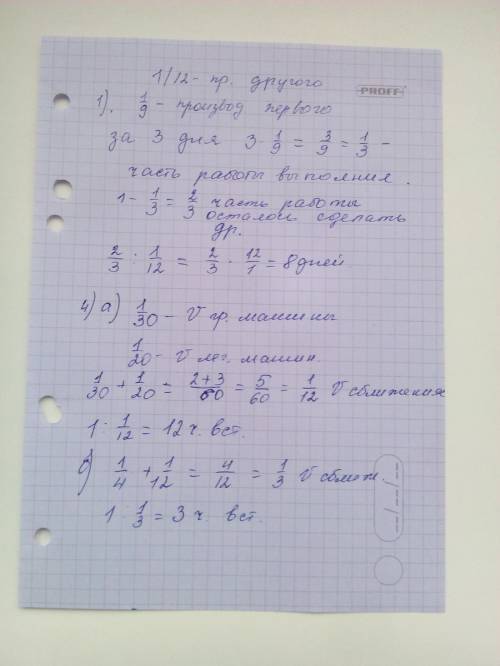 1/12 - пр. другого
PROFF
1). 1/9 - производ первого
за 3 дня 3 · 1/9 = 3/9 = 1/3 -
часть работы выполния.
1 - 1/3 = 2/3 часть работы
осталось сделать
др.
2/3 : 1/12 = 2/3 · 12/1 = 8 дней
4) а) 1/30 - V гр. машины
1/20 - V лег. машин.
1/30 + 1/20 = 2+3/60 = 5/60 = 1/12 V сближения
1 : 1/12 = 12 ч. вст.
б) 1/4 + 1/12 = 4/12 = 1/3 V сближ.
1 : 1/3 = 3 ч. вст.